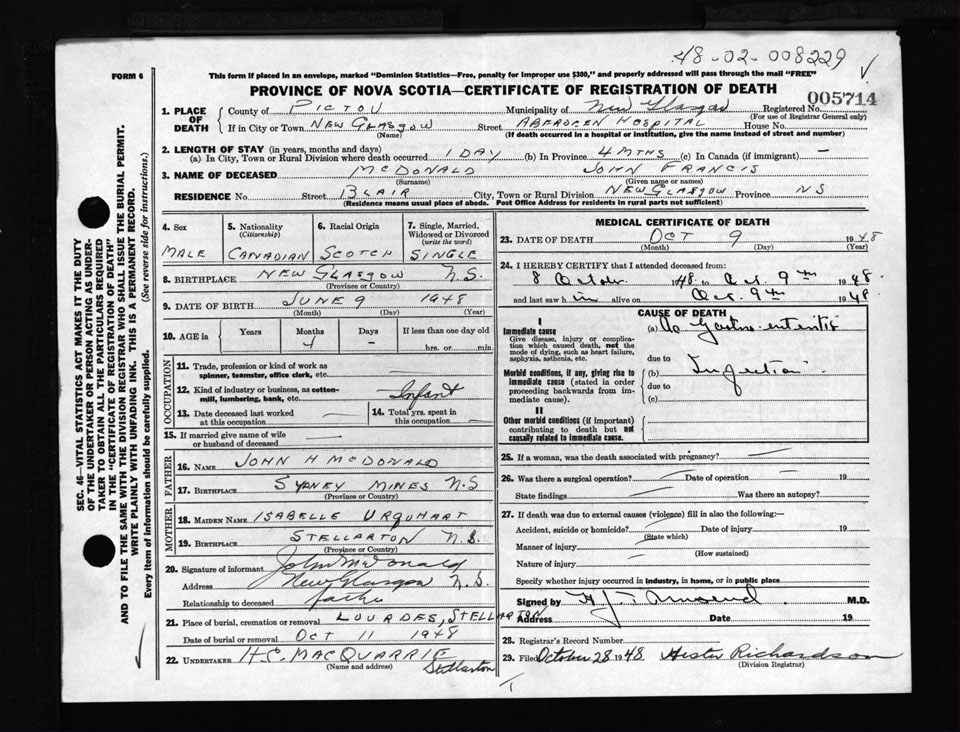 48-02-008229
FORM 6
This form if placed in an envelope, marked "Dominion Statistics—Free, penalty for improper use $300," and properly addressed will pass through the mail "FREE"
PROVINCE OF NOVA SCOTIA—CERTIFICATE OF REGISTRATION OF DEATH
005714
1. PLACE OF DEATH
County of PICTOU Municipality of New Glasgow Registered No.
(For use of Registrar General only)
If in City or Town NEW GLASGOW Street ABERDEEN HOSPITAL House No.
(Name) (If death occurred in a hospital or institution, give the name instead of street and number)
2. LENGTH OF STAY (in years, months and days)
(a) In City, Town or Rural Division where death occurred 1 DAY (b) In Province 4 MTHS (c) In Canada (if immigrant) —
3. NAME OF DECEASED MCDONALD JOHN FRANCIS
(Surname) (Given name or names)
RESIDENCE No. Street BLAIR City, Town or Rural Division NEW GLASGOW Province NS
(Residence means usual place of abode. Post Office Address for residents in rural parts not sufficient)
4. Sex
MALE
5. Nationality
(Citizenship)
CANADIAN
6. Racial Origin
SCOTCH
7. Single, Married,
Widowed or Divorced
(write the word)
SINGLE
8. BIRTHPLACE NEW GLASGOW N.S.
(Province or Country)
9. DATE OF BIRTH JUNE 9 1948
(Month) (Day) (Year)
10. AGE in Years Months Days If less than one day old
4 – hrs. or min.
OCCUPATION
11. Trade, profession or kind of work as
spinner, teamster, office clerk, etc.
12. Kind of industry or business, as cotton-
mill, lumbering, bank, etc. Infant
13. Date deceased last worked
at this occupation
14. Total yrs. spent in
this occupation
15. If married give name of wife
or husband of deceased
FATHER
16. NAME JOHN H MCDONALD
17. BIRTHPLACE SYDNEY MINES N.S
(Province or Country)
MOTHER
18. MAIDEN NAME ISABELLE URQUHART
19. BIRTHPLACE STELLARTON N.S.
(Province or Country)
20. Signature of informant John McDonald
Address New Glasgow N.S.
Relationship to deceased father
21. Place of burial, cremation or removal LOURDES, STELLARTON
Date of burial or removal OCT 11 1948
22. UNDERTAKER H.C. MACQUARRIE Stellarton
(Name and address)
MEDICAL CERTIFICATE OF DEATH
23. DATE OF DEATH OCT 9 1948
(Month) (Day) (Year)
24. I HEREBY CERTIFY that I attended deceased from:
8 Octobr. 1948 to Oct. 9th 1948
and last saw him alive on Oct. 9th 1948
CAUSE OF DEATH
I
Immediate cause
Give disease, injury or complica-
tion which caused death, not the
mode of dying, such as heart failure,
asphyxia, asthenia, etc.
(a) Ac Gastro enteritis
due to
Morbid conditions, if any, giving rise to
immediate cause (stated in order
proceeding backwards from im-
mediate cause).
(b) Infection
due to
(c)
II
Other morbid conditions (if important)
contributing to death but not
causally related to immediate cause.
25. If a woman, was the death associated with pregnancy?
26. Was there a surgical operation? Date of operation 19
State findings Was there an autopsy?
27. If death was due to external causes (violence) fill in also the following:—
Accident, suicide or homicide? Date of injury 19
(State which)
Manner of injury
(How sustained)
Nature of injury
Specify whether injury occurred in industry, in home, or in public place
Signed by M.D.
Address Date 19
28. Registrar's Record Number
29. Filed October 28 1948 Hester Richardson
(Division Registrar)
SEC. 46—VITAL STATISTICS ACT MAKES IT THE DUTY
OF THE UNDERTAKER OR PERSON ACTING AS UNDER-
TAKER TO OBTAIN ALL THE PARTICULARS REQUIRED
IN THE "CERTIFICATE OF REGISTRATION OF DEATH"
AND TO FILE THE SAME WITH THE DIVISION REGISTRAR WHO SHALL ISSUE THE BURIAL PERMIT.
WRITE PLAINLY WITH UNFADING INK. THIS IS A PERMANENT RECORD.
Every item of information should be carefully supplied. (See reverse side for instructions.)